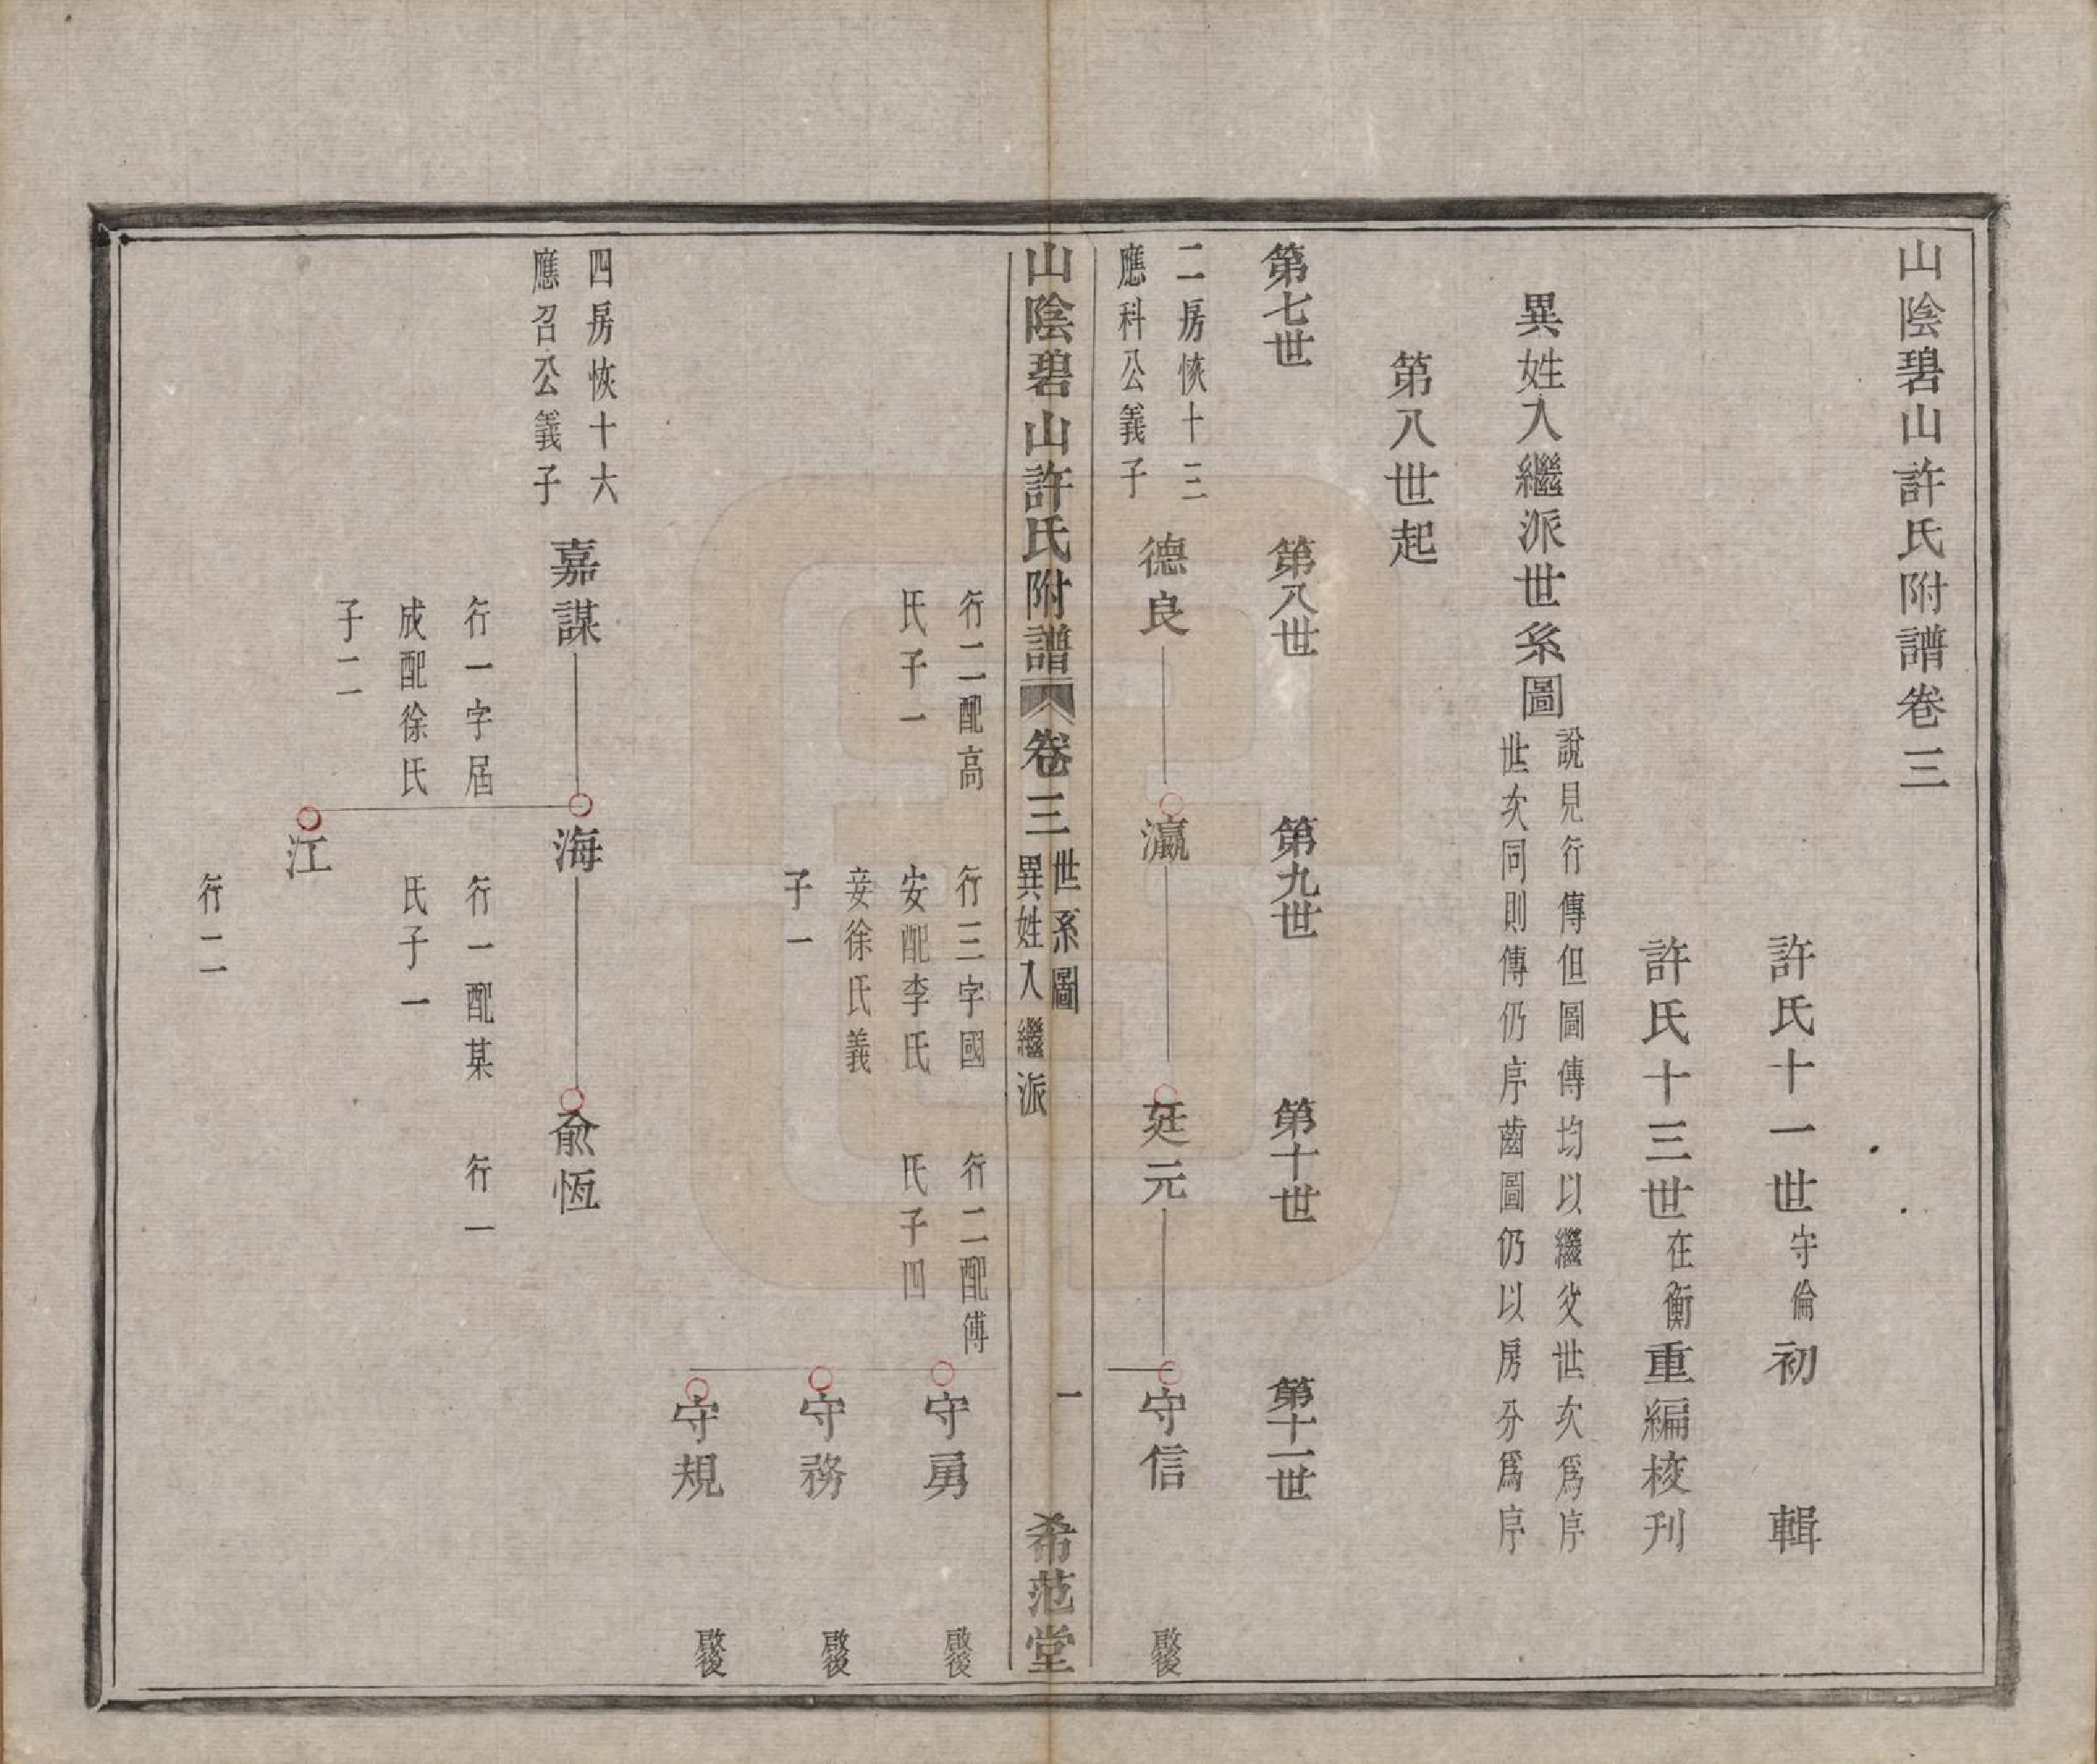 山陰碧山許氏附譜卷三
許氏十一世守倫初　輯
許氏十三世在衡重編校刊
異姓入繼派世系圖
說見行傳但圖傳均以繼父世次爲序
世次同則傳仍序齒圖仍以房分爲序
第八世起
第七世
第八世
第九世
第十世
第十一世
二房恢十三
應科公義子
德良
瀛
廷元
守信
啟後
山陰碧山許氏附譜
卷三
世系圖
異姓入繼派
一
希范堂
行二配高
氏子一
行三字國
安配李氏
妾徐氏義
子一
行二配傅
氏子四
守勇
啟後
守務
啟後
守規
啟後
四房恢十六
應召公義子
嘉謀
海
俞恆
行一字屆
成配徐氏
子二
行一配某
氏子一
行一
江
行二